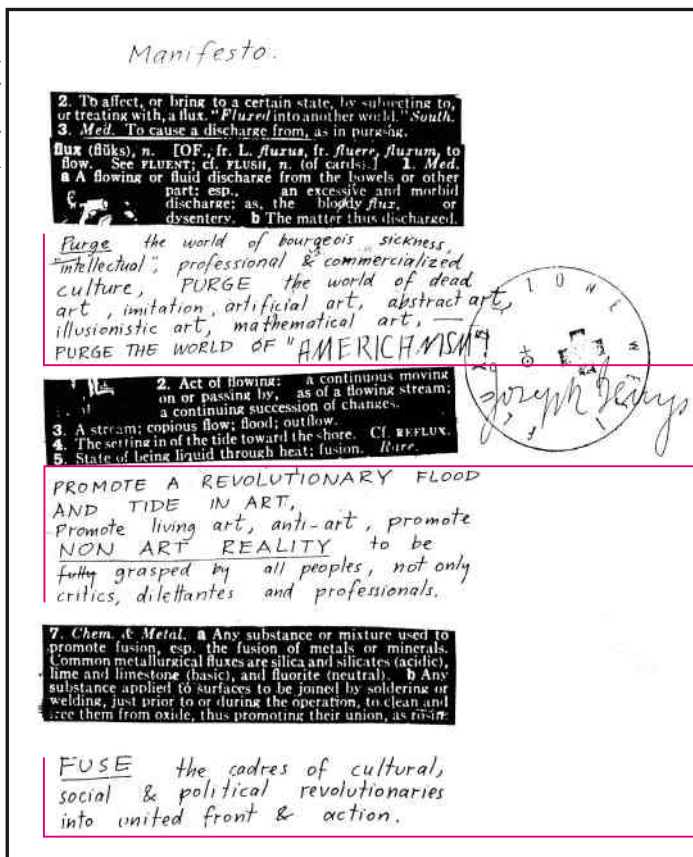 Manifesto.
2. To affect, or bring to a certain state, by subjecting to,
or treating with, a flux. "Fluxed into another world." South.
3. Med. To cause a discharge from, as in purging.
flux (flŭks), n. [OF., fr. L. fluxus, fr. fluere, fluxum, to
flow. See FLUENT; cf. FLUSH, n. (of cards).] 1. Med.
a A flowing or fluid discharge from the bowels or other
part: esp., an excessive and morbid
discharge; as, the bloody flux, or
dysentery. b The matter thus discharged.
Purge the world of bourgeois sickness,
"intellectual", professional & commercialized
culture, PURGE the world of dead
art, imitation, artificial art, abstract art,
illusionistic art, mathematical art, —
PURGE THE WORLD OF "AMERICANISM"
Joseph Beuys
2. Act of flowing: a continuous moving
on or passing by, as of a flowing stream;
a continuing succession of changes.
3. A stream; copious flow; flood; outflow.
4. The setting in of the tide toward the shore. Cf. REFLUX.
5. State of being liquid through heat; fusion. Rare.
PROMOTE A REVOLUTIONARY FLOOD
AND TIDE IN ART,
Promote living art, anti-art, promote
NON ART REALITY to be
fully grasped by all peoples, not only
critics, dilettantes and professionals.
7. Chem. & Metal. a Any substance or mixture used to
promote fusion, esp. the fusion of metals or minerals.
Common metallurgical fluxes are silica and silicates (acidic),
lime and limestone (basic), and fluorite (neutral). b Any
substance applied to surfaces to be joined by soldering or
welding, just prior to or during the operation, to clean and
free them from oxide, thus promoting their union, as rosin
FUSE the cadres of cultural,
social & political revolutionaries
into united front & action.